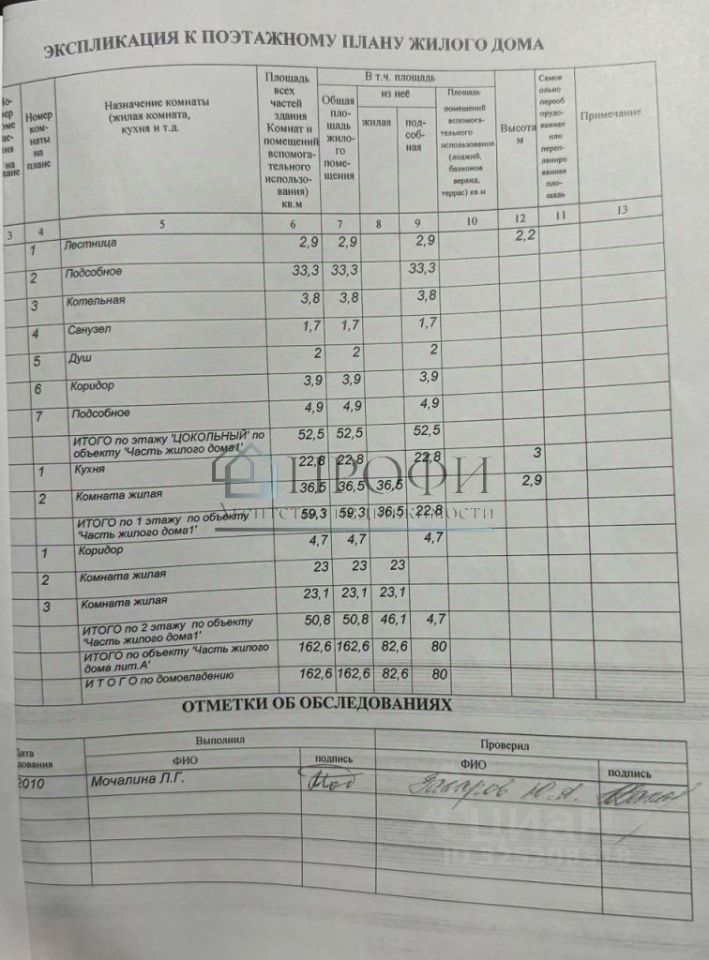 ЭКСПЛИКАЦИЯ К ПОЭТАЖНОМУ ПЛАНУ ЖИЛОГО ДОМА
Номер комнаты на плане
Назначение комнаты (жилая комната, кухня и т.д.
Площадь всех частей здания Комнат и помещений вспомогательного использования) кв.м
В т.ч. площадь
Общая площадь жилого помещения
из неё
жилая
подсобная
Площадь помещений вспомогательного использования (лоджий, балконов веранд, террас) кв.м
Высота м
Самовольно переоборудованная или перепланированная площадь
Примечание
3 4 5 6 7 8 9 10 12 11 13
1 Лестница 2,9 2,9 2,9 2,2
2 Подсобное 33,3 33,3 33,3
3 Котельная 3,8 3,8 3,8
4 Санузел 1,7 1,7 1,7
5 Душ 2 2 2
6 Коридор 3,9 3,9 3,9
7 Подсобное 4,9 4,9 4,9
ИТОГО по этажу 'ЦОКОЛЬНЫЙ' по объекту 'Часть жилого дома1' 52,5 52,5 52,5
1 Кухня 22,8 22,8 22,8 3
2 Комната жилая 36,5 36,5 36,5 2,9
ИТОГО по 1 этажу по объекту 'Часть жилого дома1' 59,3 59,3 36,5 22,8
1 Коридор 4,7 4,7 4,7
2 Комната жилая 23 23 23
3 Комната жилая 23,1 23,1 23,1
ИТОГО по 2 этажу по объекту 'Часть жилого дома1' 50,8 50,8 46,1 4,7
ИТОГО по объекту 'Часть жилого дома лит.А' 162,6 162,6 82,6 80
И Т О Г О по домовладению 162,6 162,6 82,6 80
ПРОФИ
Агентство недвижимости
ОТМЕТКИ ОБ ОБСЛЕДОВАНИЯХ
Выполнил Проверил
ФИО подпись ФИО подпись
2010 Мочалина Л.Г. Захаров Ю.А.